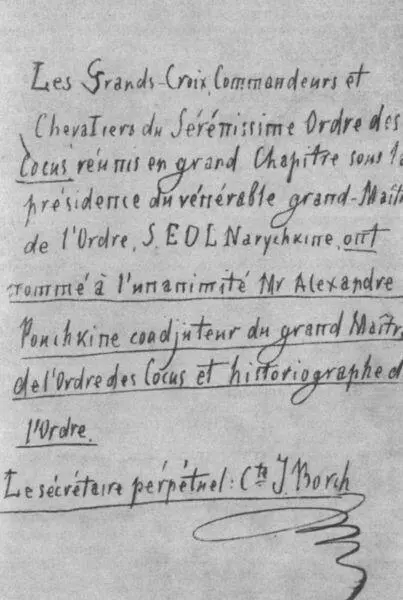 Les Grands-Croix, Commandeurs et
Chevaliers du Sérénissime Ordre des
Cocus réunis en grand Chapitre sous la
présidence du vénérable grand-Maître
de l'Ordre, S. E. D. L. Narychkine, ont
nommé à l'unanimité Mr Alexandre
Pouchkine coadjuteur du grand Maître
de l'Ordre des Cocus et historiographe d
l'Ordre.
Le sécrétaire pérpétuel: Cte J. Borch